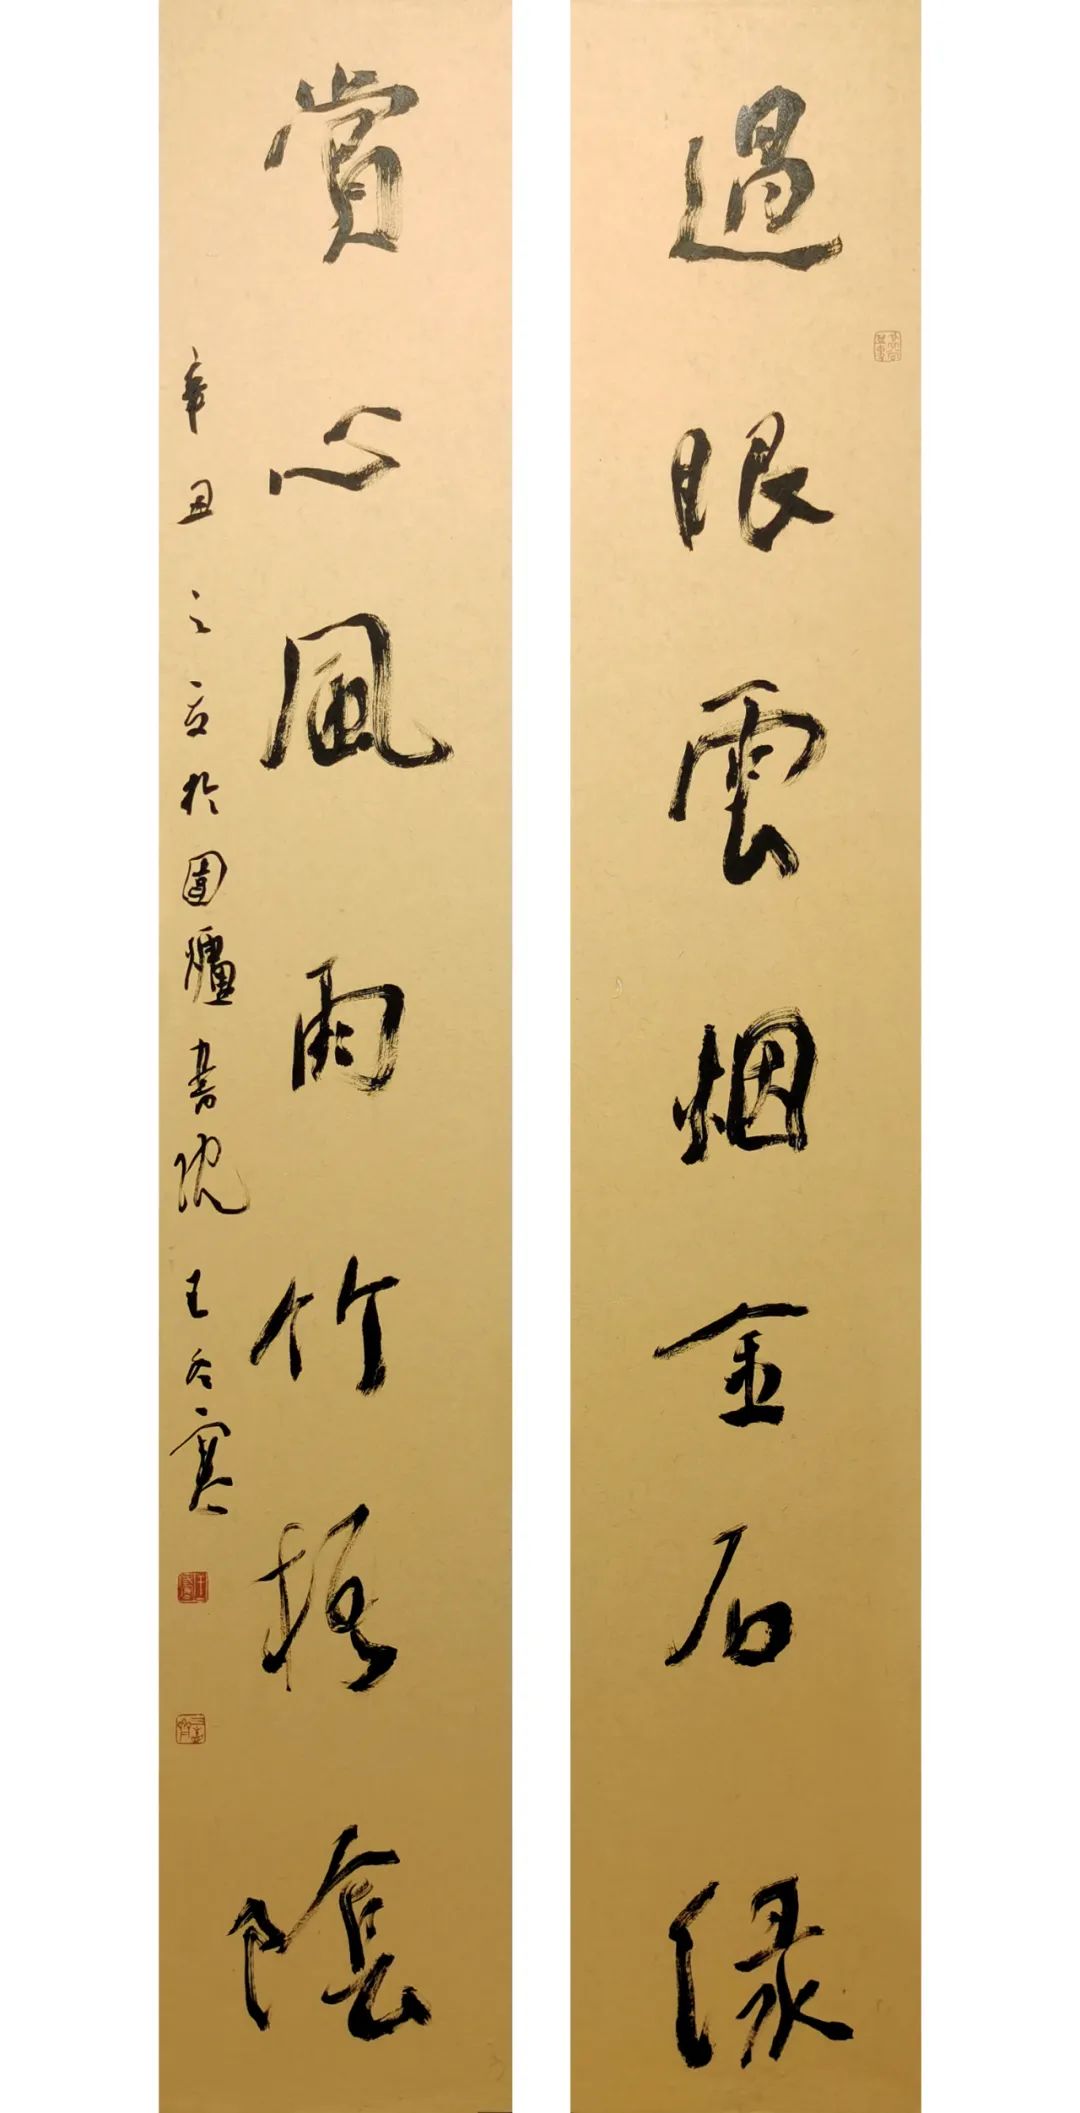 過眼雲烟金石緣
賞心風雨竹梧陰
辛丑之夏於圍爐書院王冬寒